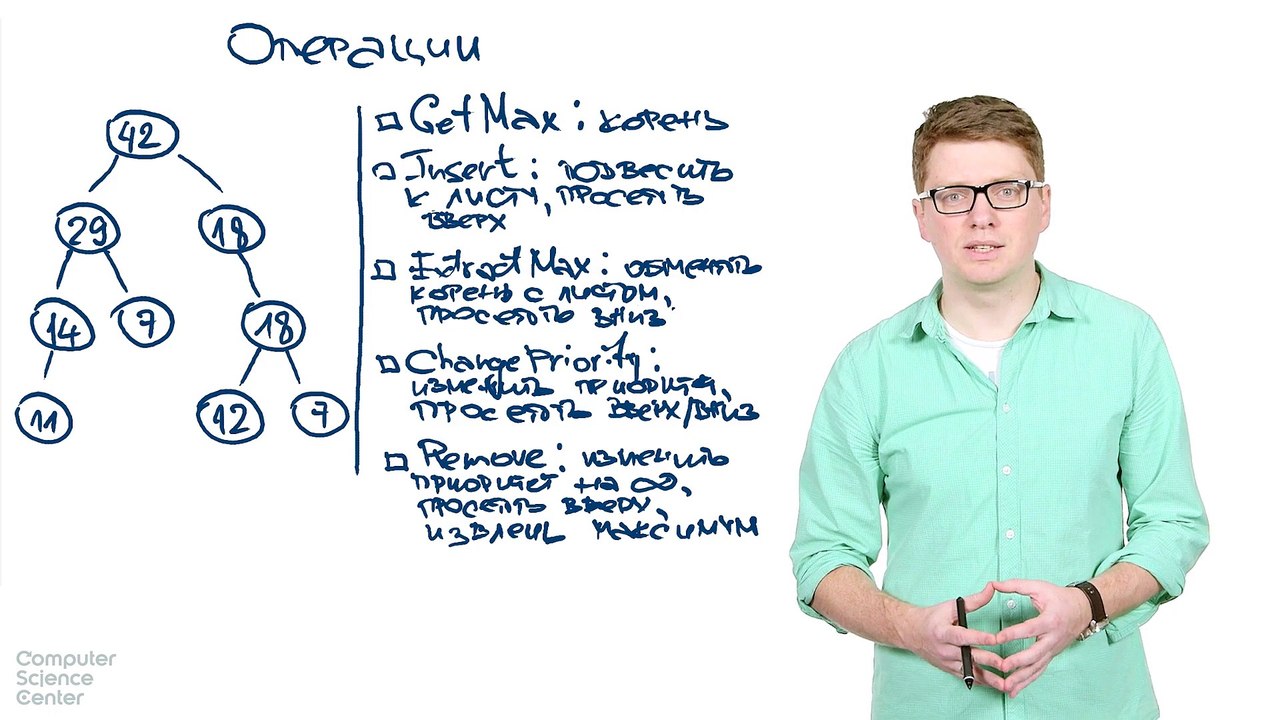 Операции
42
29 18
14 7 18
11 12 7
□ GetMax: корень
□ Insert: подвесить
к листу, просеять
вверх
□ ExtractMax: обменять
корень с листом,
просеять вниз
□ ChangePriority:
изменить приоритет,
просеять вверх/вниз
□ Remove: изменить
приоритет на ∞,
просеять вверх,
извлечь максимум
Computer
Science
Center